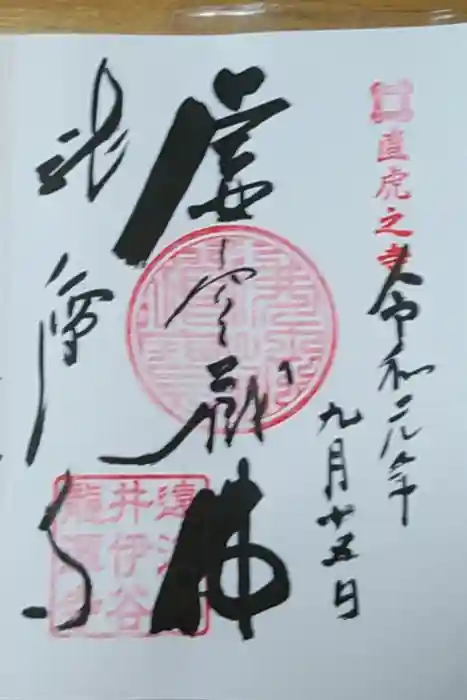 直虎之寺
令和元年
九月十五日
虚空蔵佛
龍潭寺
遠江
井伊谷
龍潭寺